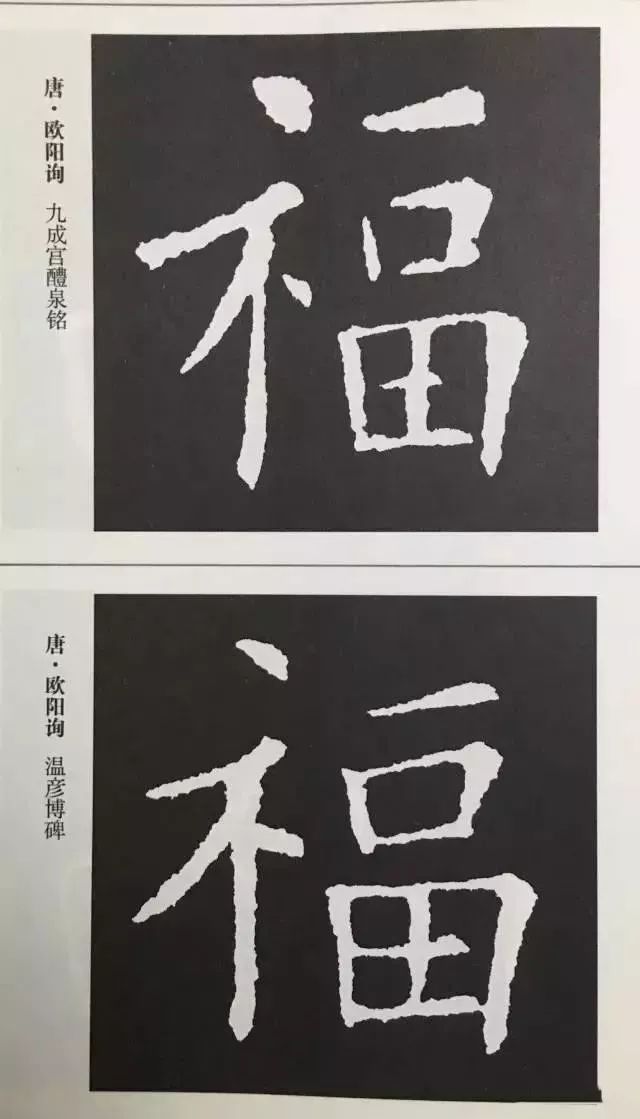 唐·欧阳询 九成宫醴泉铭
福
唐·欧阳询 温彦博碑
福